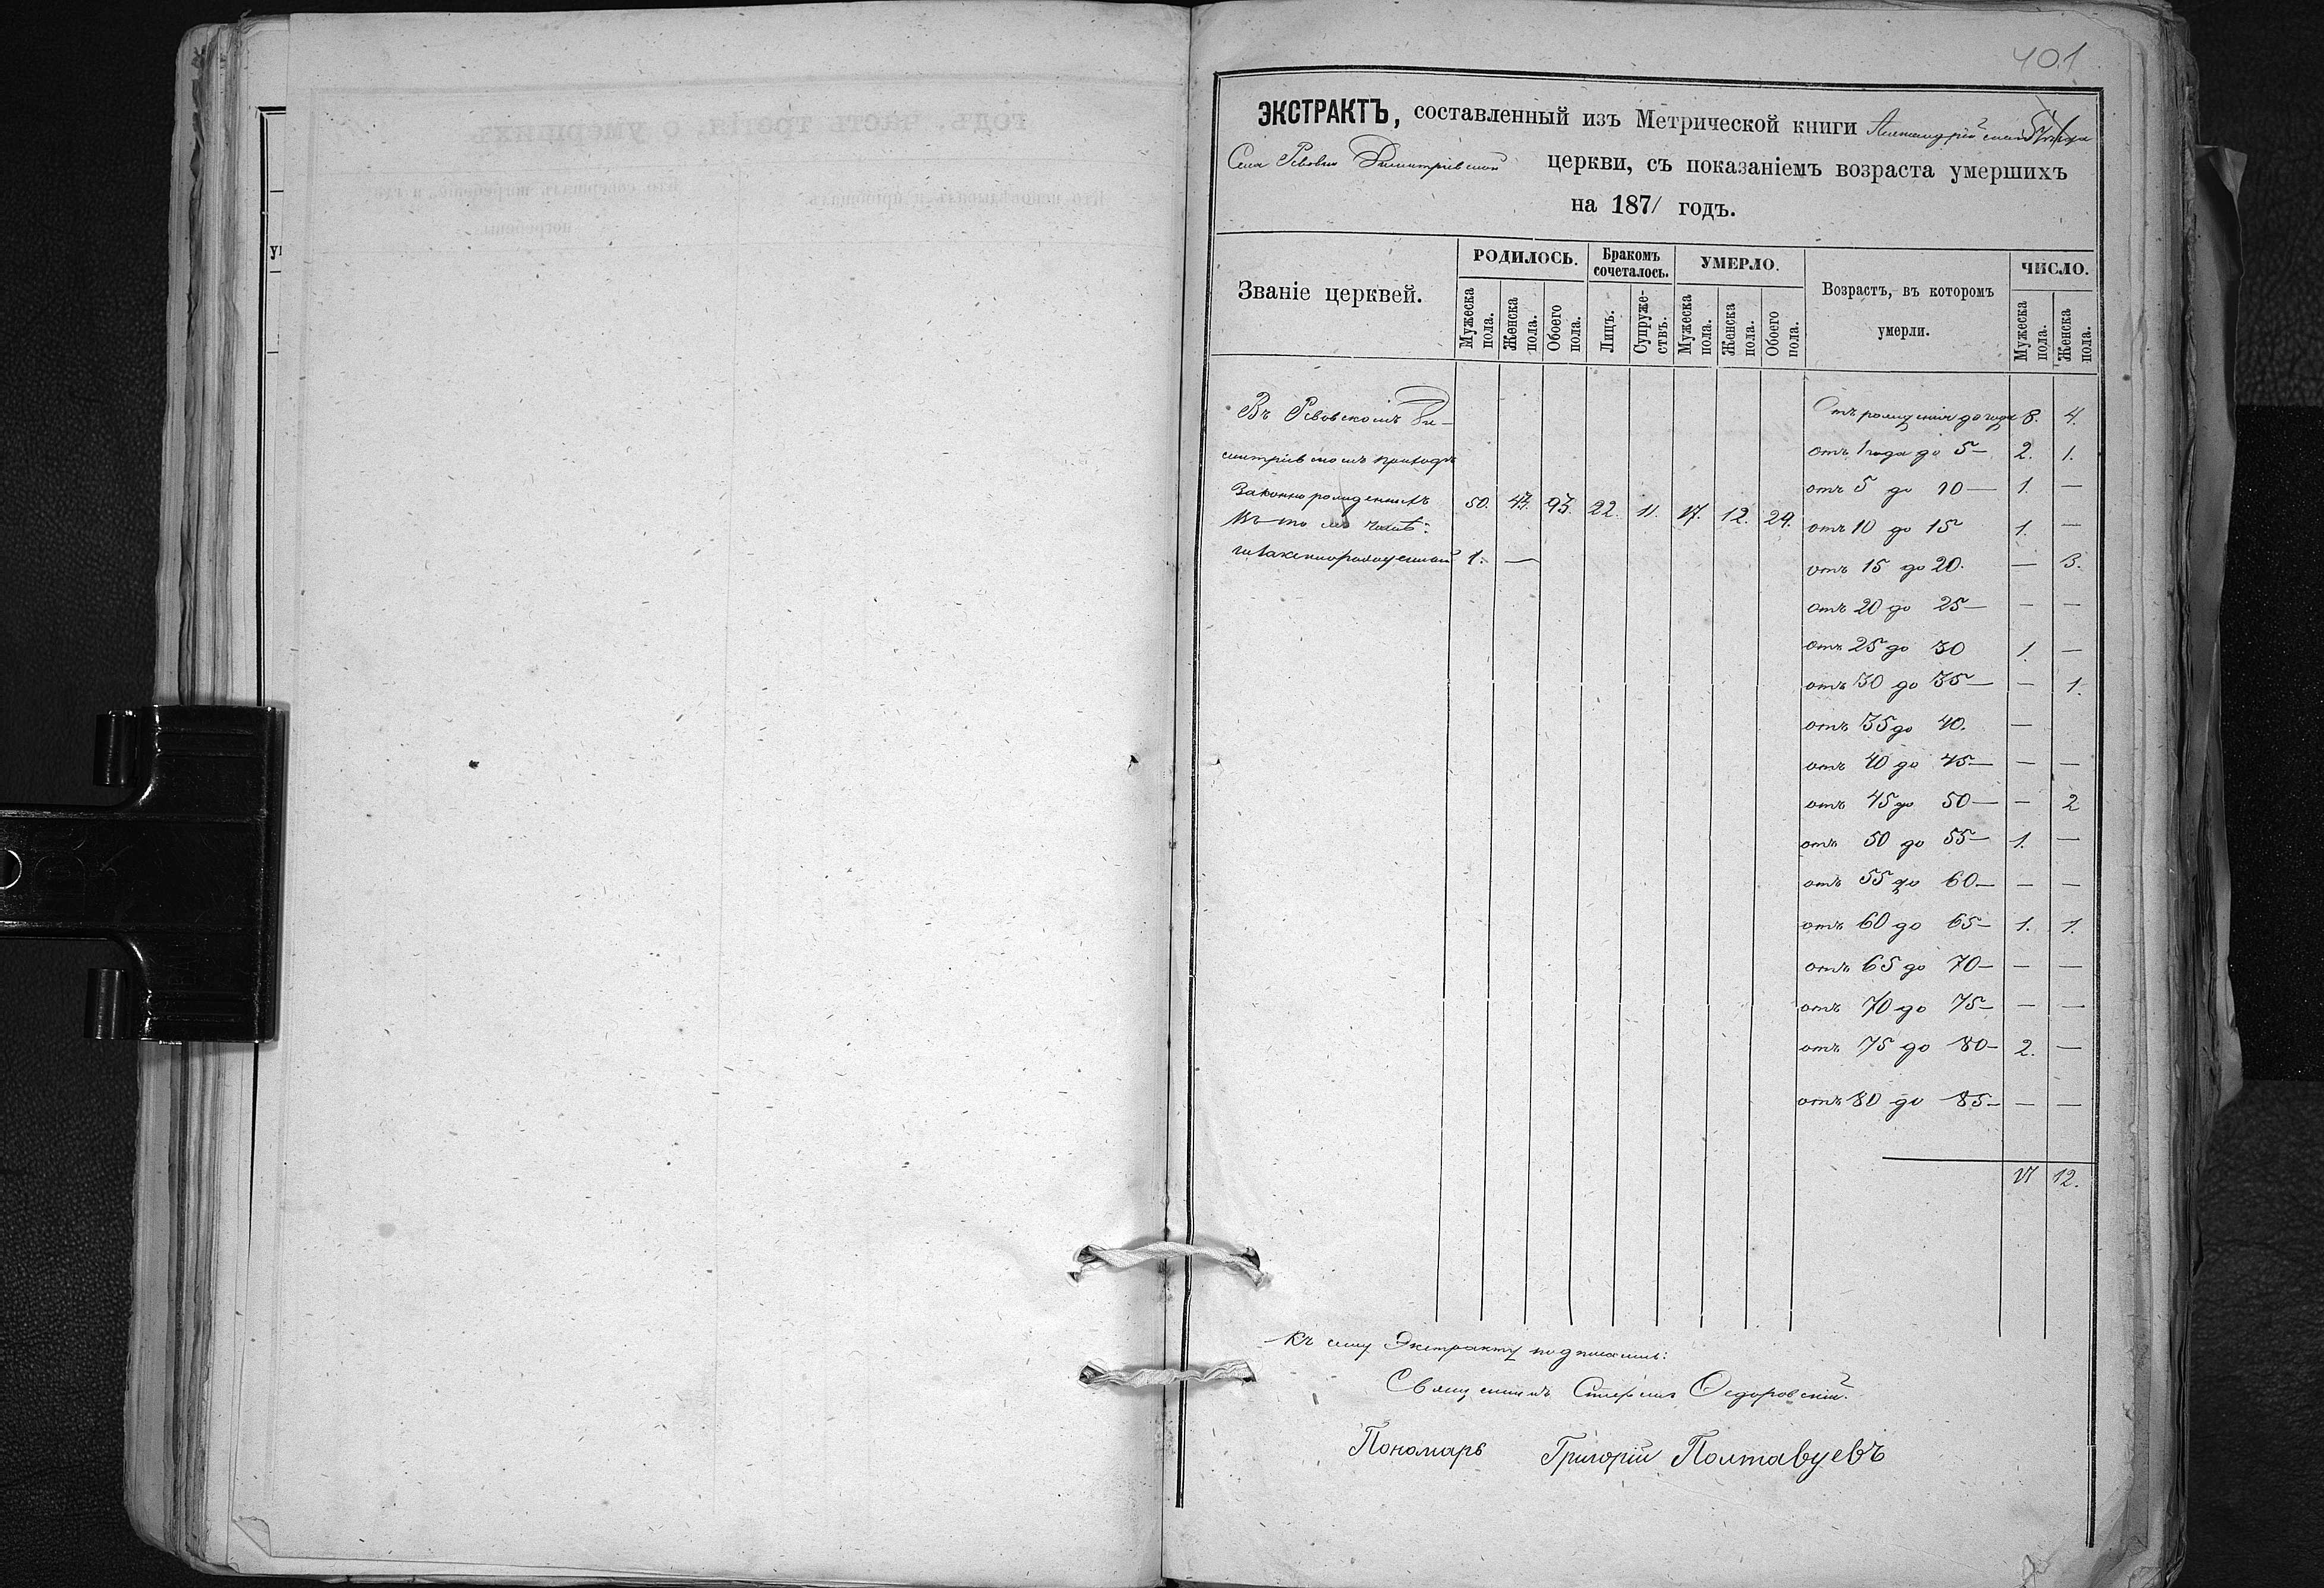 401
ЭКСТРАКТЪ, составленный изъ Метрической книги Александрійскаго уѣзда
Села Ревовки Димитріевской церкви, съ показаніемъ возраста умершихъ
на 1871 годъ.
Званіе церквей.
РОДИЛОСЬ.
Мужеска пола.
Женска пола.
Обоего пола.
Бракомъ сочеталось.
Лицъ.
Супружествъ.
УМЕРЛО.
Мужеска пола.
Женска пола.
Обоего пола.
Возрастъ, въ которомъ умерли.
ЧИСЛО.
Мужеска пола.
Женска пола.
Въ Ревовскомъ Ди-
митріевскомъ приходѣ
Законнорожденныхъ 50. 43. 93. 22. 11. 17. 12. 29.
Въ томъ числѣ:
незаконнорожденный 1. —
Отъ рожденія до года 8. 4.
отъ 1 года до 5 — 2. 1.
отъ 5 до 10 — 1. —
отъ 10 до 15 1. —
отъ 15 до 20. — 3.
отъ 20 до 25 — — —
отъ 25 до 30 1. —
отъ 30 до 35 — — 1.
отъ 35 до 40. —
отъ 40 до 45 — — —
отъ 45 до 50 — — 2
отъ 50 до 55 — 1. —
отъ 55 до 60 — — —
отъ 60 до 65 — 1. 1.
отъ 65 до 70 — — —
отъ 70 до 75 — — —
отъ 75 до 80 — 2. —
отъ 80 до 85 — — —
17 12.
Къ сему Экстракту подписались:
Священникъ Стефанъ Федоровскій.
Пономарь Григорій Полтавцевъ